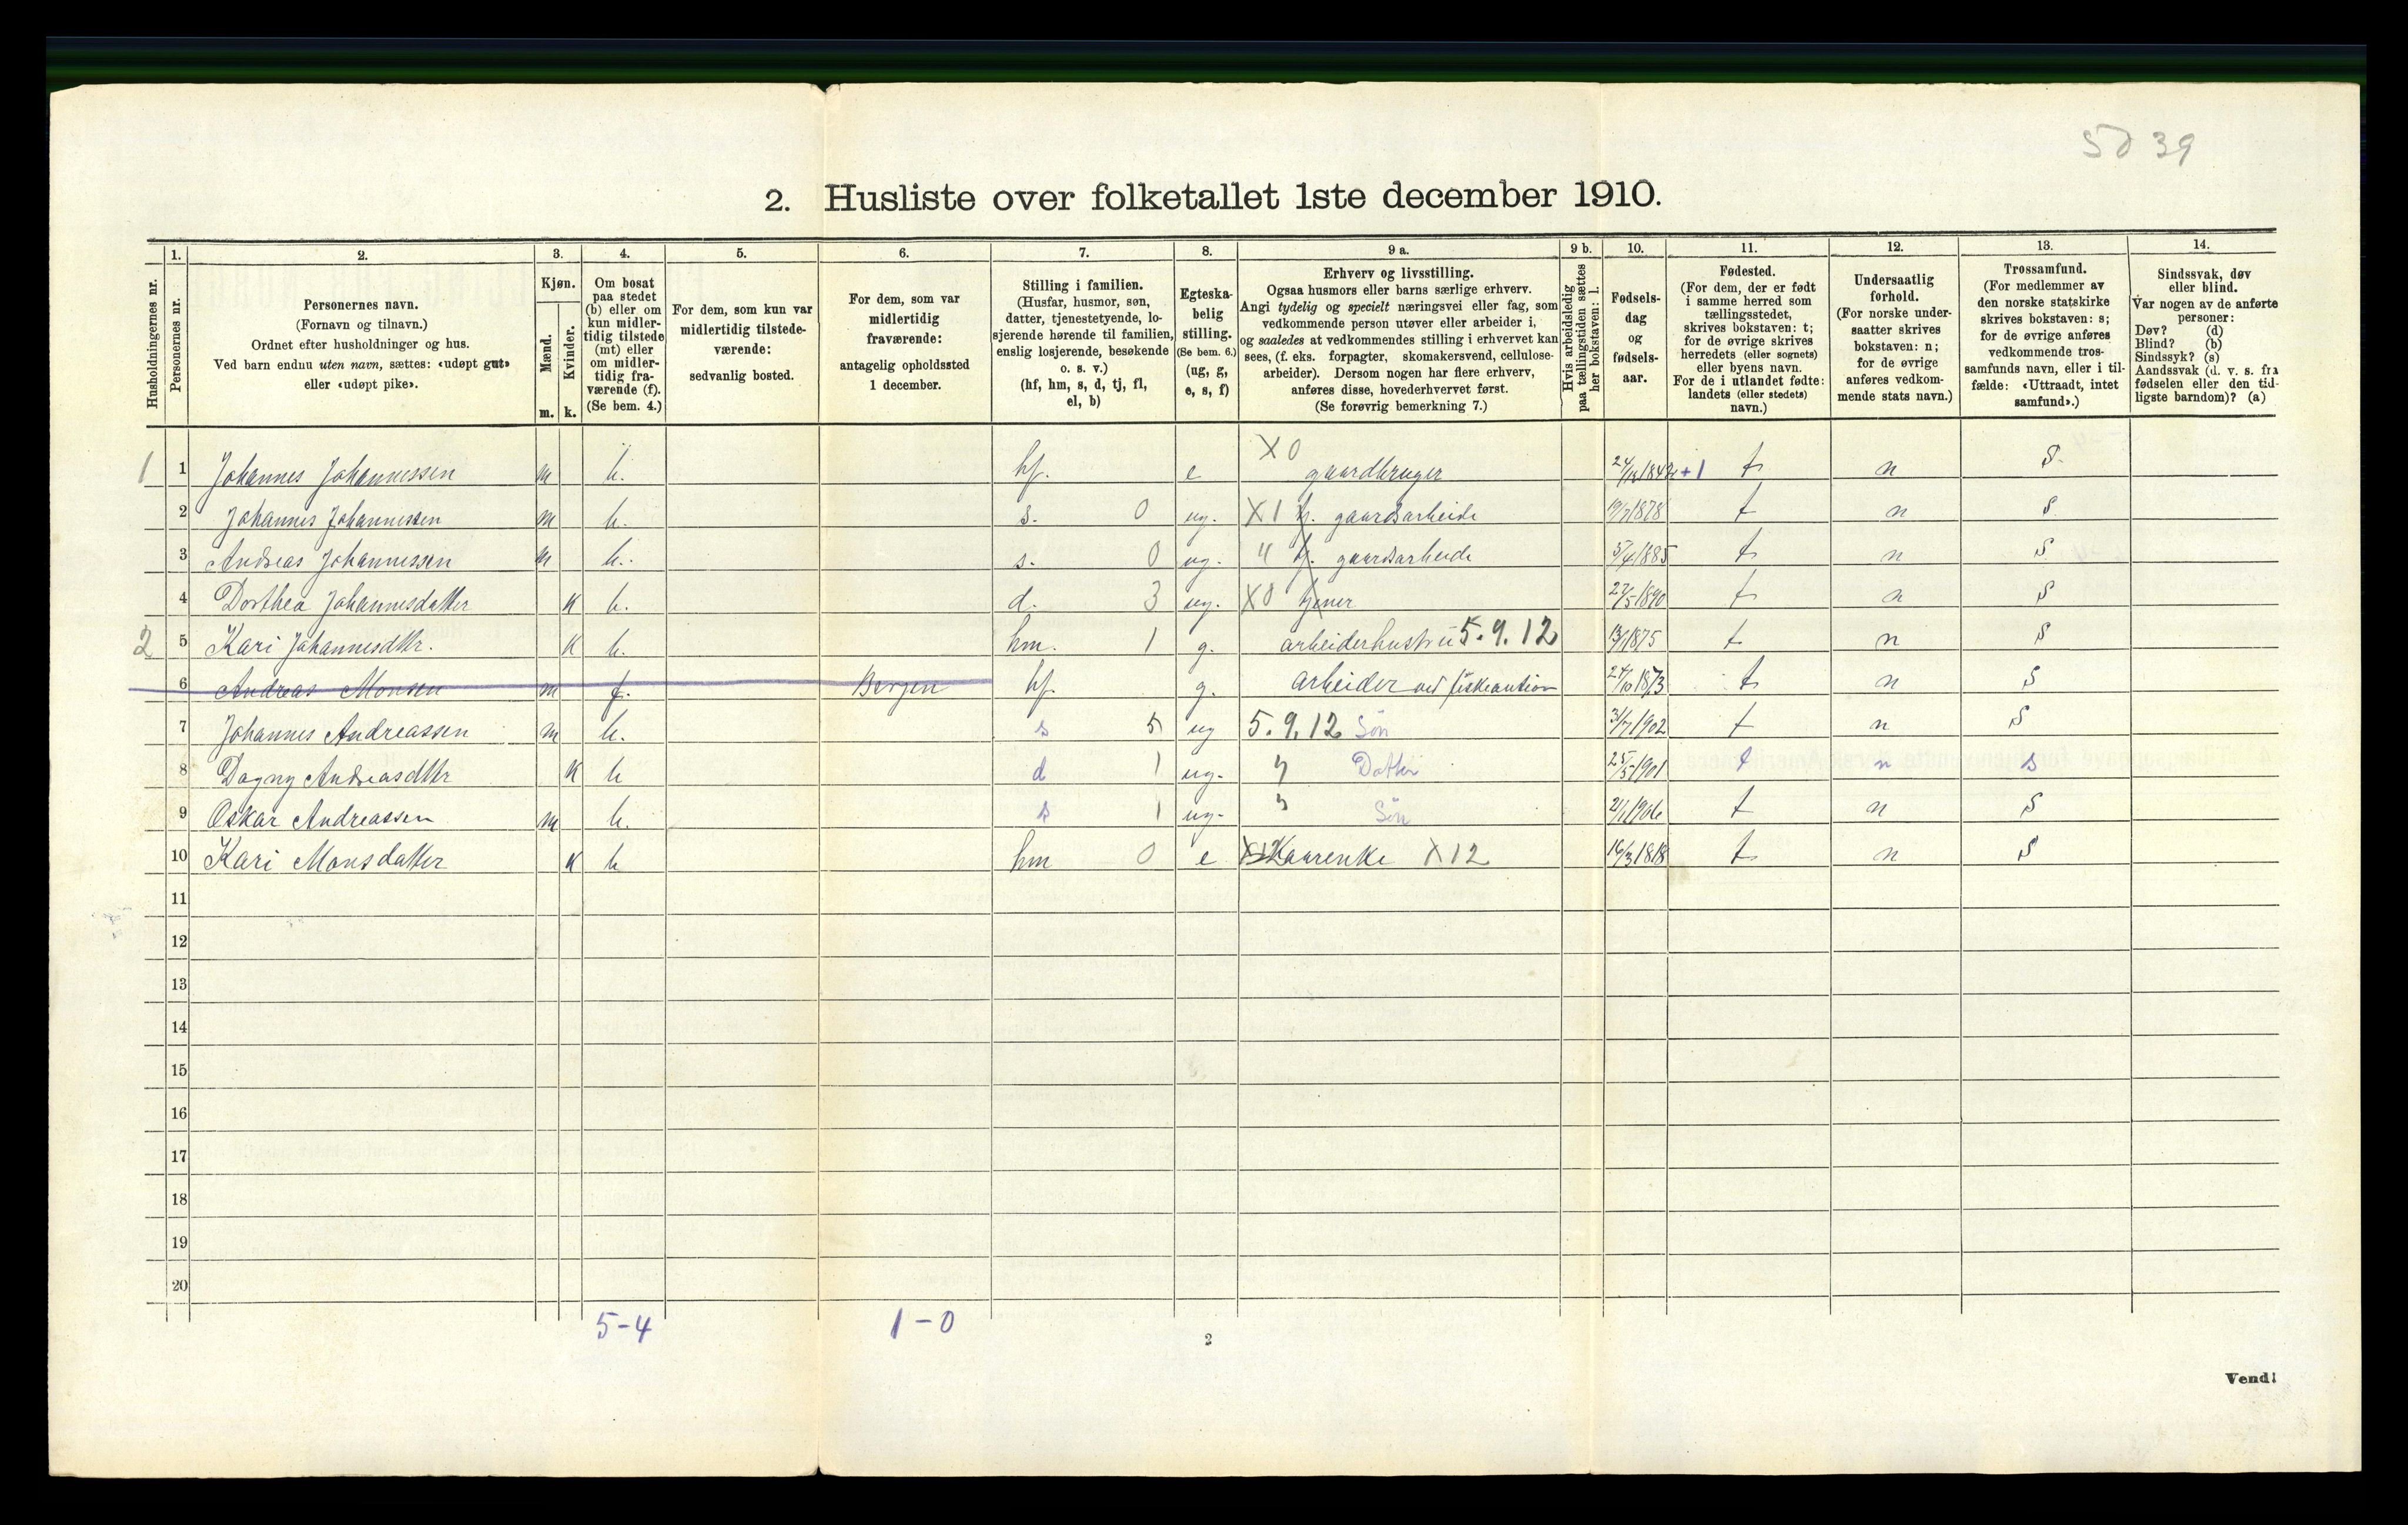 5039
2. Husliste over folketallet 1ste december 1910.
Husholdningernes nr.
1.
Personernes nr.
2.
Personernes navn.
(Fornavn og tilnavn.)
Ordnet efter husholdninger og hus.
Ved barn endnu uten navn, sættes: «udøpt gut»
eller «udøpt pike».
3.
Kjøn.
Mænd.
Kvinder.
m. k.
4.
Om bosat
paa stedet
(b) eller om
kun midler-
tidig tilstede
(mt) eller
om midler-
tidig fra-
værende (f).
(Se bem. 4.)
5.
For dem, som kun var
midlertidig tilstede-
værende:
sedvanlig bosted.
6.
For dem, som var
midlertidig
fraværende:
antagelig opholdssted
1 december.
7.
Stilling i familien.
(Husfar, husmor, søn,
datter, tjenestetyende, lo-
sjerende hørende til familien,
enslig losjerende, besøkende
o. s. v.)
(hf, hm, s, d, tj, fl,
el, b)
8.
Egteska-
belig
stilling.
(Se bem. 6.)
(ug, g,
e, s, f)
9 a.
Erhverv og livsstilling.
Ogsaa husmors eller barns særlige erhverv.
Angi tydelig og specielt næringsvei eller fag, som
vedkommende person utøver eller arbeider i,
og saaledes at vedkommendes stilling i erhvervet kan
sees, (f. eks. forpagter, skomakersvend, cellulose-
arbeider). Dersom nogen har flere erhverv,
anføres disse, hovederhvervet først.
(Se forøvrig bemerkning 7.)
9 b.
Hvis arbeidsledig
paa tællingstiden sættes
her bokstaven: l.
10.
Fødsels-
dag
og
fødsels-
aar.
11.
Fødested.
(For dem, der er født
i samme herred som
tællingsstedet,
skrives bokstaven: t;
for de øvrige skrives
herredets (eller sognets)
eller byens navn.
For de i utlandet fødte:
landets (eller stedets)
navn.)
12.
Undersaatlig
forhold.
(For norske under-
saatter skrives
bokstaven: n;
for de øvrige
anføres vedkom-
mende stats navn.)
13.
Trossamfund.
(For medlemmer av
den norske statskirke
skrives bokstaven: s;
for de øvrige anføres
vedkommende tros-
samfunds navn, eller i til-
fælde: «Uttraadt, intet
samfund».)
14.
Sindssvak, døv
eller blind.
Var nogen av de anførte
personer:
Døv? (d)
Blind? (b)
Sindssyk? (s)
Aandssvak (d. v. s. fra
fødselen eller den tid-
ligste barndom)? (a)
1 1 Johannes Johannessen m b. hf. e X0 gaardbruger +1 t n S
2 Johannes Johannessen m b. s. 0 ug. X1 gaardsarbeide 1878 t n S
3 Andreas Johannessen m b. s. 0 ug. " gaardsarbeide 5/4 1885 t n S
4 Dorthea Johannesdatter k b. d. 3 ug. X0 tjener 27/5 1890 t n S
2 5 Kari Johannesdttr. k b. hm. 1 g. arbeiderhustru 5.9.12 13/1 1875 t n S
6 Andreas Monsen m f. Bergen hf g. arbeider ved 24/10 1873 t n S
7 Johannes Andreassen m b. s 5 ug 5.9.12 Søn 31/7 1902 t n S
8 Dagny Andreasdttr k b d 1 ug. " Datter 25/5 1901 t n s
9 Oskar Andreassen m b. s 1 ug. " Søn 21/1 1906 t n S
10 Kari Monsdatter k b hm 0 e Kaarenke X12 16/3 1818 t n S
11
12
13
14
15
16
17
18
19
20
5-4 1-0
2
Vend!